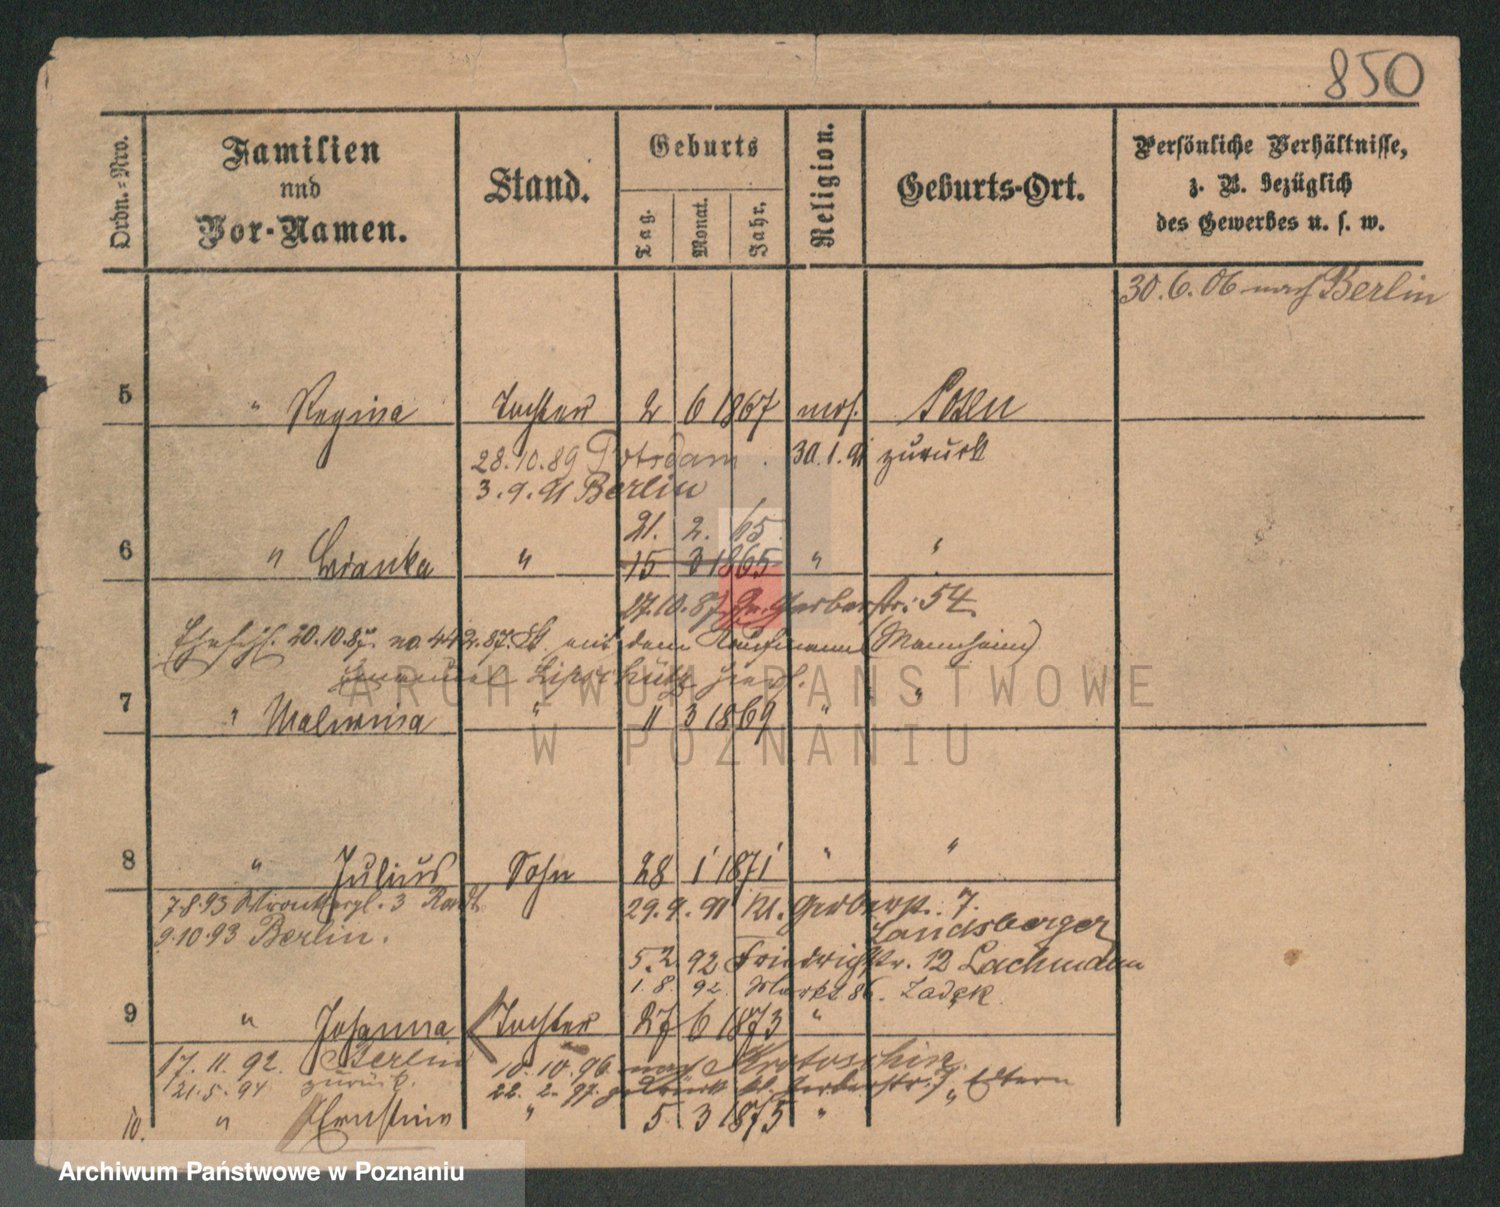 850
Ordn.-Nro.
Familien
und
Vor-Namen.
Stand.
Geburts
Tag.
Monat.
Jahr.
Religion.
Geburts-Ort.
Persönliche Verhältnisse,
z. B. bezüglich
des Gewerbes u. s. w.
30.6.06 nach Berlin
5 " Regina Tochter 2 6 1867 mos. Posen
28.10.89 Potsdam. 30.1.91 zurück
3.9.91 Berlin
21. 2. 65
6 " Bianka " 15 3 1865 " "
17.10.87 Gr. Gerberstr. 54
20.10.87. no. 442.87. mit dem Kaufmann (Mannheim)
Lipschütz
7 " Malwina " 11 3 1869 " "
8 " Julius Sohn 28 1 1871 " "
7.8.93 3
29.9.91 Kl. Gerberstr. 7.
9.10.93 Berlin.
Landsberger
5.2.92 Friedrichstr. 12 Lachmann
1.8.92. Markt 86. Zadek
9 " Johanna Tochter 27 6 1873 "
17.11.92. Berlin
10.10.96 nach Krotoschin
21.5.94 zurück.
22.2.97. zurück Kl. Gerberstr. 7 Eltern
10. " Ernstine " 5 3 1875 " "
ARCHIWUM PAŃSTWOWE
W POZNANIU
Archiwum Państwowe w Poznaniu